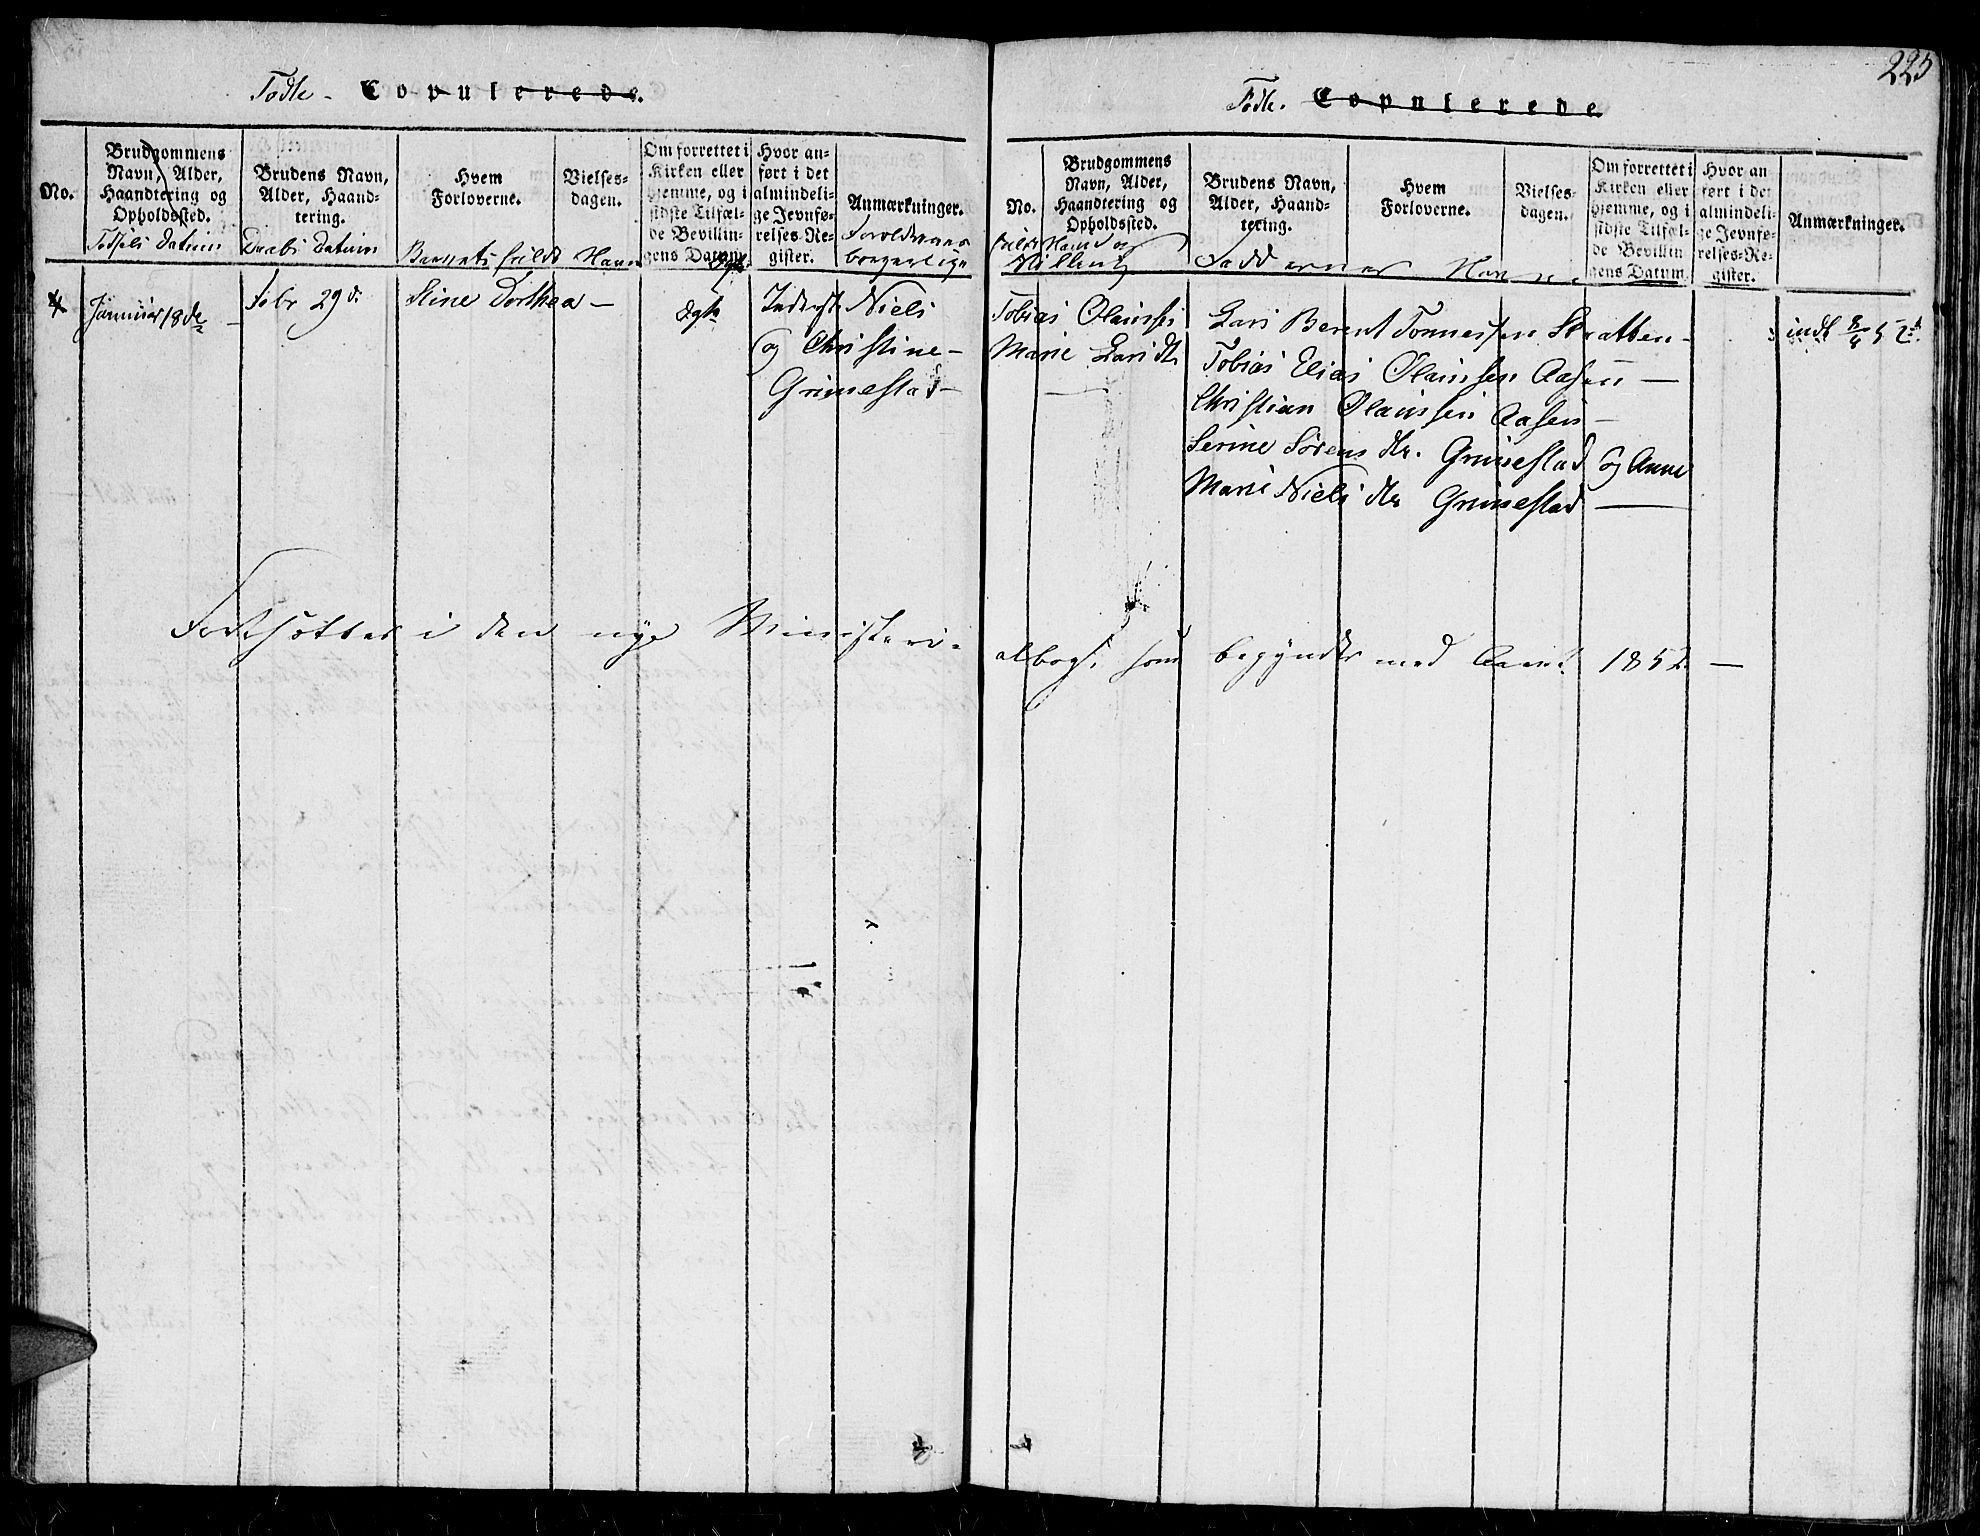 225
Fødte. Copulerede.
No.
Brudgommens Navn, Alder, Haandtering og Opholdssted.
Brudens Navn, Alder, Haandtering.
Hvem Forloverne.
Vielsesdagen.
Om forrettet i Kirken eller hjemme, og i sidste Tilfælde Bevillingens Datum.
Hvor anført i det almindelige Jevnførelses-Register.
Anmærkninger.
Fødsels Datum
Daabs Datum
Barnets fulde Navn
Forældrenes borgerlige
4
Januar 18de
Febr 29d.
Stine Dorthea —
Ægte
Inderst Niels
og Christine
Grimestad
Fortsættes i den nye Ministeri-
Fødte. Copulerede
No.
Brudgommens Navn, Alder, Haandtering og Opholdssted.
Brudens Navn, Alder, Haandtering.
Hvem Forloverne.
Vielsesdagen.
Om forrettet i Kirken eller hjemme, og i sidste Tilfælde Bevillingens Datum.
Hvor anført i det almindelige Jevnførelses-Register.
Anmærkninger.
fulde Navn og Stilling
Faddernes Navne
Tobias Olaussen
Marie Larsdtr
Lars Berent Tønnessen Skatten
Tobias Elias Olaussen Aasen —
Christian Olaussen Aasen —
Serine Sørensdtr. Grimestad og Anne
Marie Nielsdtr Grimestad —
albog, som begyndes med Aaret 1852 —